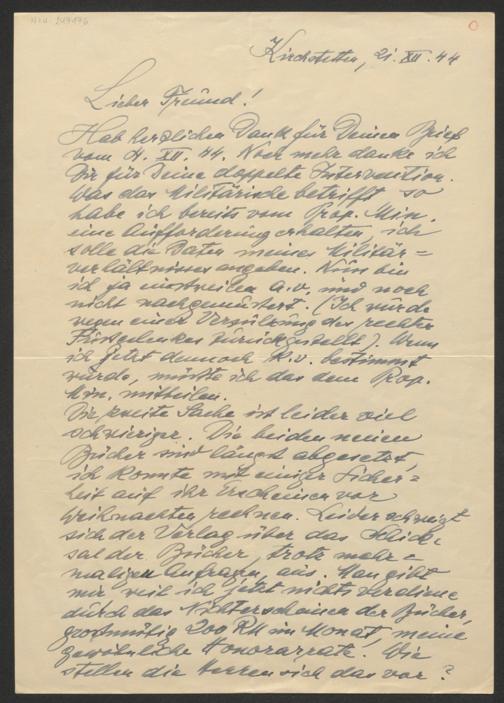 Kirchstetten, 21. XII. 44
Lieber Freund!
Hab herzlichen Dank für Deinen Brief
vom 4. XII. 44. Noch mehr danke ich
Dir für Deine doppelte Intervention.
Was das Militärische betrifft so
habe ich bereits vom Prop. Min.
eine Aufforderung erhalten, ich
solle die Daten meines Militär=
verhältnisses angeben. Nun bin
ich ja einstweilen a.v. und noch
nicht nachgemustert. (Ich wurde
wegen einer Verstülzung des rechten
Fußgelenkes zurückgestellt). Wenn
ich jetzt dennoch k.v. bestimmt
würde, müßte ich das dem Prop.
Min. mitteilen.
Die zweite Sache ist leider viel
schwieriger. Die beiden neuen
Bücher sind längst abgesetzt,
ich konnte mit einiger Sicher=
heit auf ihr Erscheinen vor
Weihnachten rechnen. Leider schweigt
sich der Verlag über das Schick=
sal der Bücher, trotz mehr=
maligen Anfragen, aus. Man gibt
mir weil ich jetzt nichts verdiene
durch das Nichterscheinen der Bücher,
großmütig 200 RM im Monat, meine
gewöhnliche Honorarrate. Wie
stellen die Herren sich das vor?